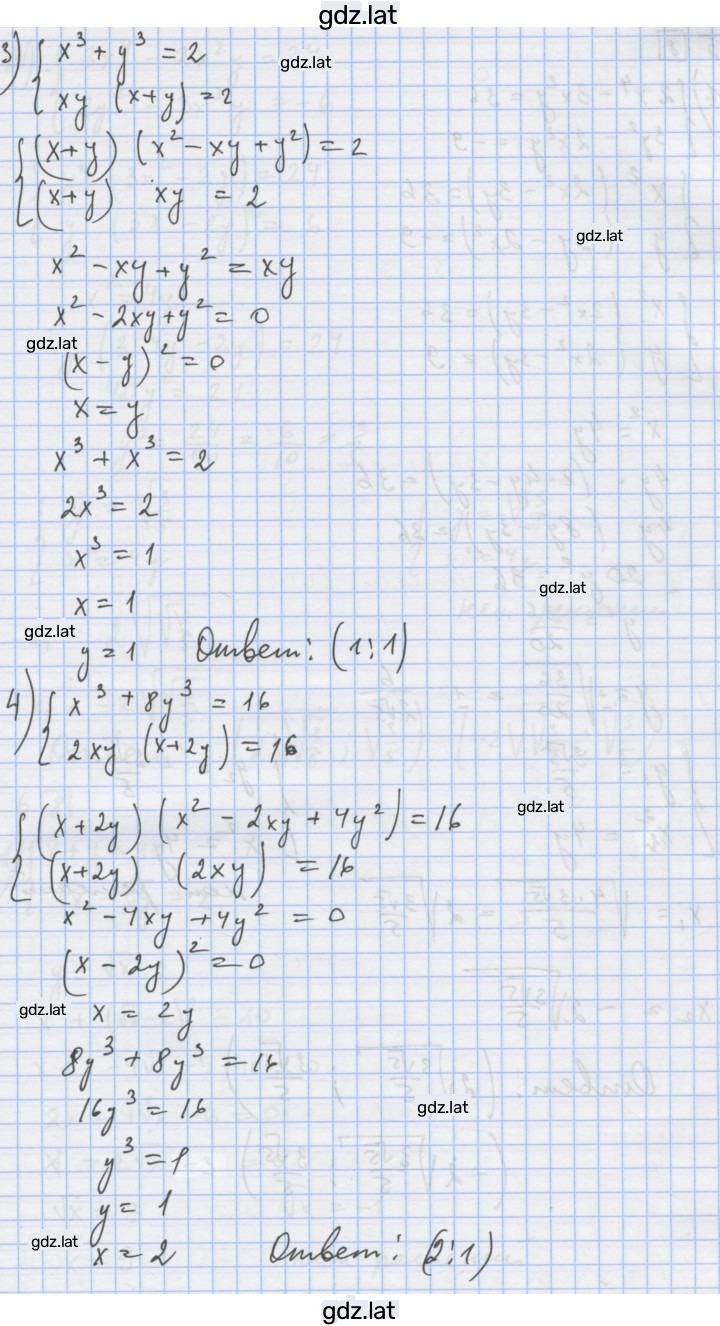 gdz.lat
3) { x³ + y³ = 2
gdz.lat
xy (x+y) = 2
{ (x+y) (x² - xy + y²) = 2
(x+y) xy = 2
gdz.lat
x² - xy + y² = xy
x² - 2xy + y² = 0
gdz.lat
(x - y)² = 0
x = y
x³ + x³ = 2
2x³ = 2
x³ = 1
gdz.lat
x = 1
gdz.lat
y = 1 Ответ: (1; 1)
4) { x³ + 8y³ = 16
2xy (x+2y) = 16
gdz.lat
{ (x + 2y) (x² - 2xy + 4y²) = 16
(x+2y) (2xy) = 16
x² - 4xy + 4y² = 0
(x - 2y)² = 0
gdz.lat
x = 2y
8y³ + 8y³ = 16
16y³ = 16
gdz.lat
y³ = 1
y = 1
gdz.lat
x = 2 Ответ: (2; 1)
gdz.lat